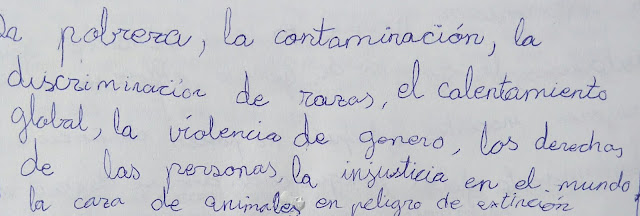 La pobreza, la contaminación, la
discriminación de razas, el calentamiento
global, la violencia de genero, los derechos
de las personas, la injusticia en el mundo,
la caza de animales en peligro de extinción